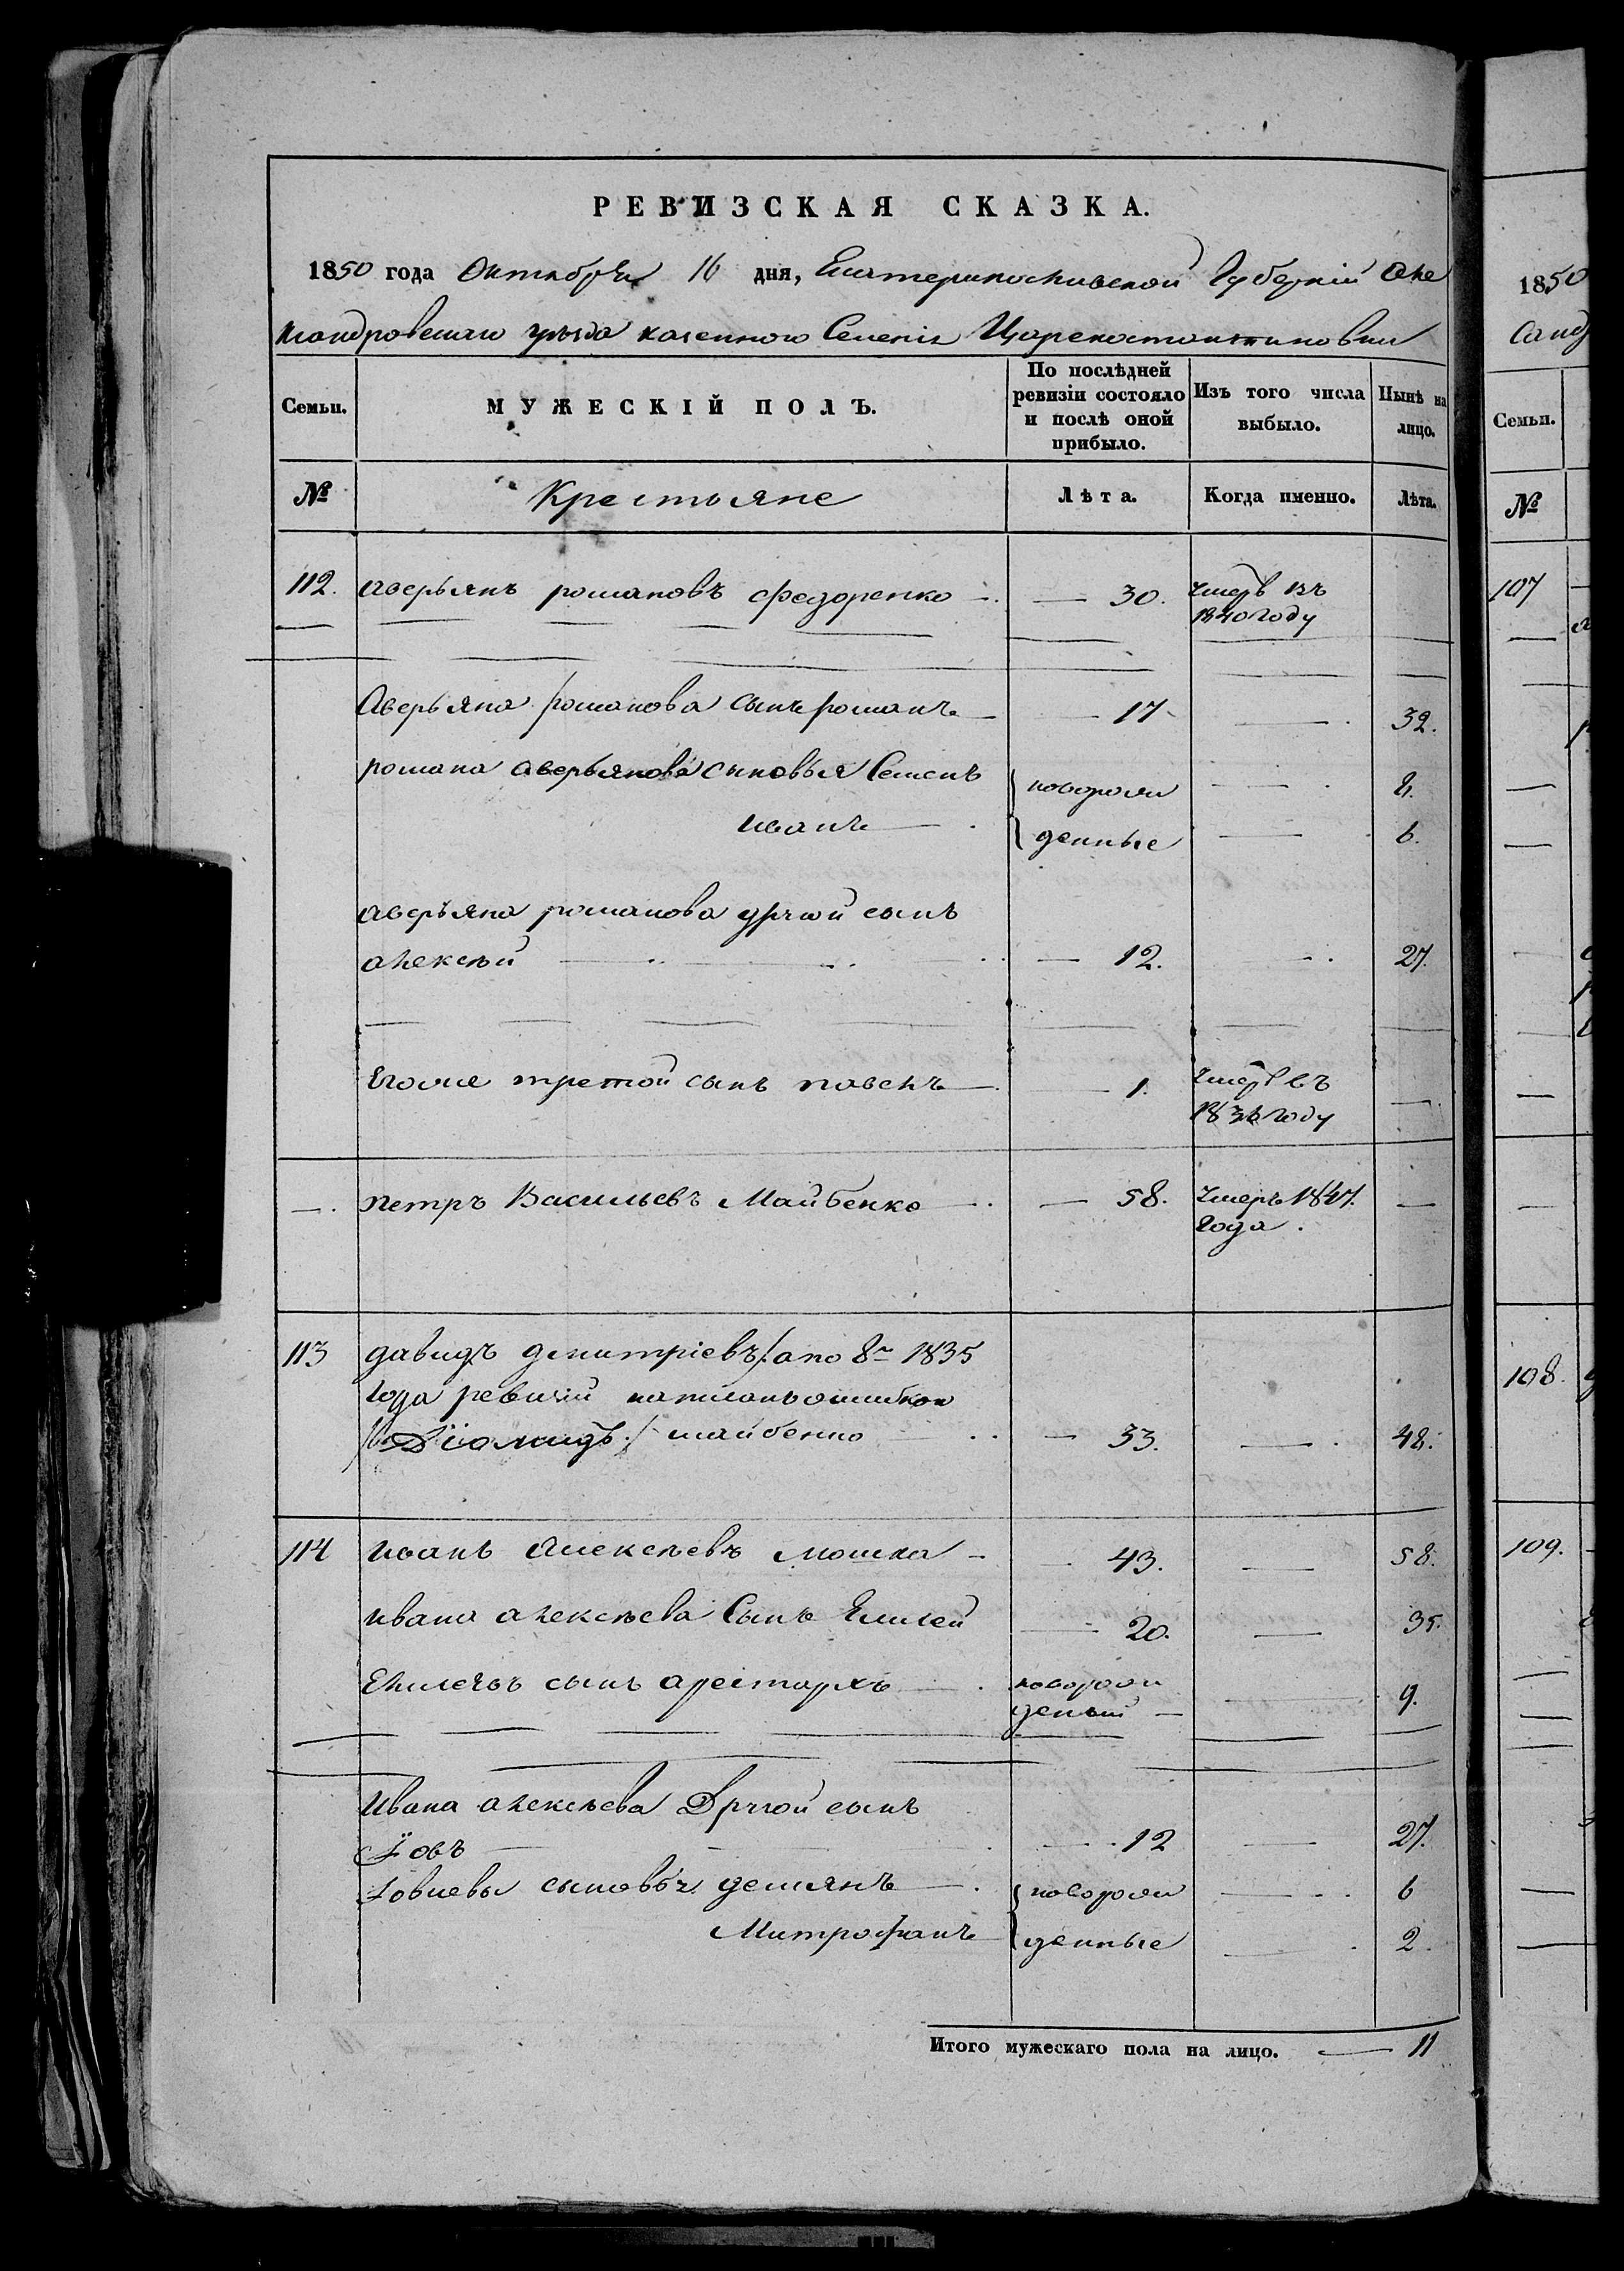 РЕВИЗСКАЯ СКАЗКА.
1850 года Октября 16 дня, Екатеринославской Губерніи Але
ксандровскаго уѣзда казенного Селенія Цареконстантиновки
Семьи. МУЖЕСКІЙ ПОЛЪ. По послѣдней ревизіи состояло и послѣ оной прибыло. Изъ того числа выбыло. Нынѣ на лицо.
№ Крестьяне Лѣта. Когда именно. Лѣта.
112. аверьянъ романовъ федоренко 30. умеръ въ
1840 году
Аверьяна романова сынъ романъ 17 32.
романа аверьянова сыновья Семенъ новорож 8.
иванъ денные 6.
аверьяна романова другой сынъ
алексѣй 12. 27.
Егоже третой сынъ павелъ 1. умеръ въ
году
петръ Васильевъ Майбенко 58. умеръ 1847.
года.
113 давидъ дмитріевъ /: а по 8й 1835
года ревизіи написанъ ошибкою
Діомидъ :/ майбенко 33. 48.
114 иванъ Алексѣевъ мошка 43. 58.
ивана алексѣева Сынъ Елисей 20. 35.
Елисеевъ сынъ арестархъ новорож
денный 9.
Ивана алексѣева Другой сынъ
Іовъ 12 27.
Іовлевы сыновья демянъ новорож 6
Митрофанъ денные 2.
Итого мужескаго пола на лицо. 11
1850
Санд
Семьи.
№
107
108.
109.